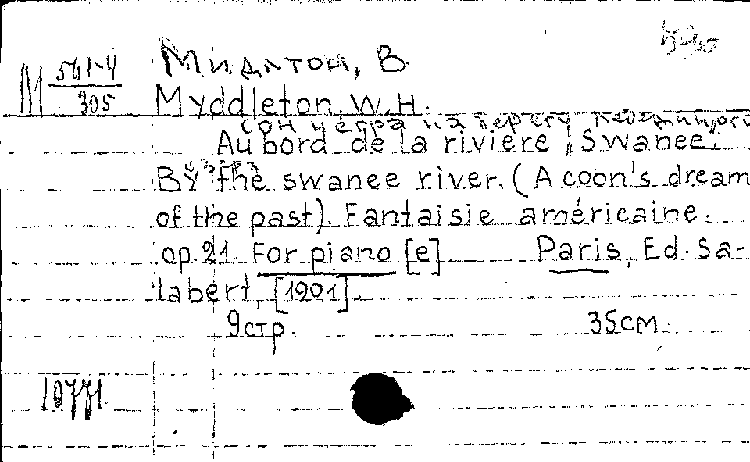 Мидлтон, В.
М 561-4/305
Myddleton W.H.
сон негра на берегу
Au bord de la rivière "Swanee.
By the swanee river. (A coon's dream
of the past). Fantaisie américaine.
op. 21. For piano [e] Paris, Ed. Sa-
labert, [1901].
9 стр. 35 см.
10771